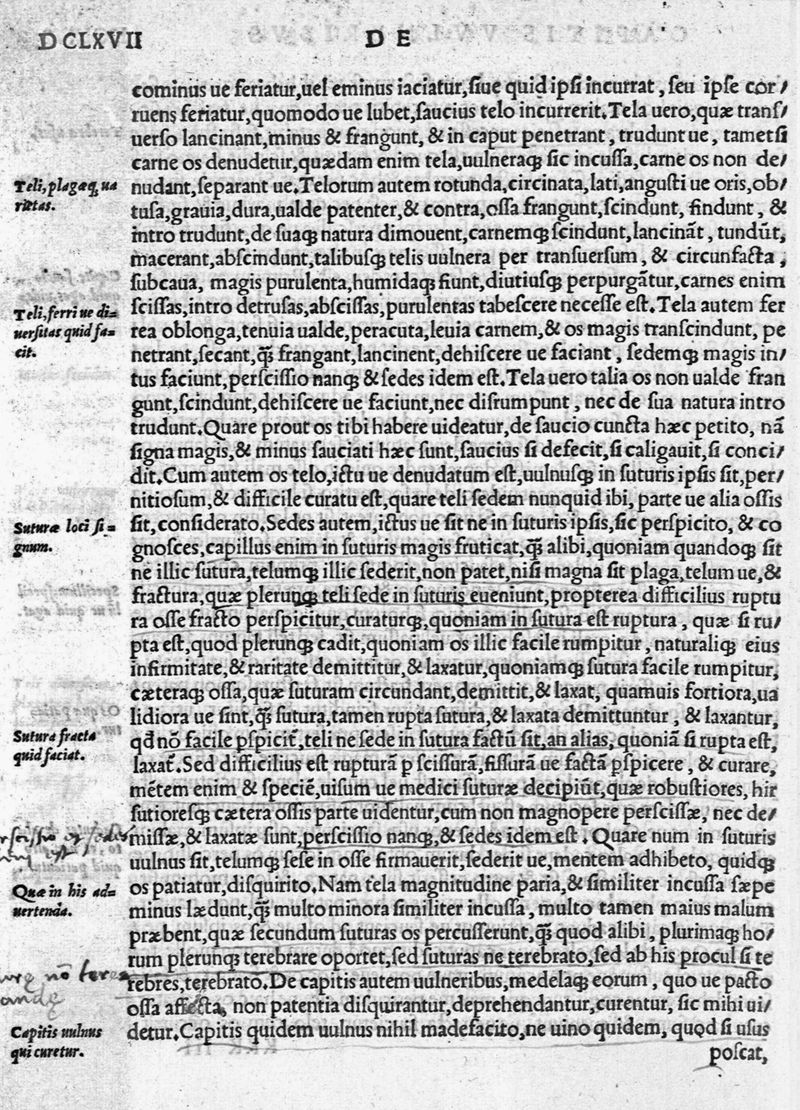 DCLXVII
DE
cominus ue feriatur,uel eminus iaciatur,ſiue quid ipſi incurrat, ſeu ipſe cor/
ruens feriatur,quomodo ue lubet,ſaucius telo incurrerit.Tela uero,quæ tranſ/
uerſo lancinant,minus & frangunt, & in caput penetrant, trudunt ue, tametſi
carne os denudetur,quædam enim tela,uulneraq; ſic incuſſa,carne os non de/
Teli, plagæq; ua
rietas.
nudant,ſeparant ue.Telorum autem rotunda,circinata,lati,anguſti ue oris,ob/
tuſa,grauia,dura,ualde patenter,& contra,oſſa frangunt,ſcindunt, findunt, &
intro trudunt,de ſuaq; natura dimouent,carnemq; ſcindunt,lancināt, tundūt,
macerant,abſcindunt,talibuſq; telis uulnera per tranſuerſum, & circunfacta,
ſubcaua, magis purulenta,humidaq; fiunt,diutiuſq; perpurgātur,carnes enim
Teli, ferri ue di=
uerſitas quid fa=
cit.
ſciſſas,intro detruſas,abſciſſas,purulentas tabeſcere neceſſe eſt.Tela autem fer
rea oblonga,tenuia ualde,peracuta,leuia carnem,& os magis tranſcindunt, pe
netrant,ſecant,q̃; frangant,lancinent,dehiſcere ue faciant, ſedemq; magis in/
tus faciunt,perſciſſio nanq; & ſedes idem eſt.Tela uero talia os non ualde fran
gunt,ſcindunt,dehiſcere ue faciunt,nec diſrumpunt, nec de ſua natura intro
trudunt.Quare prout os tibi habere uideatur,de ſaucio cuncta hæc petito, nā
ſigna magis,& minus ſauciati hæc ſunt,ſaucius ſi defecit,ſi caligauit,ſi conci/
dit.Cum autem os telo,ictu ue denudatum eſt,uulnuſq; in ſuturis ipſis ſit,per/
nitioſum,& difficile curatu eſt,quare teli ſedem nunquid ibi, parte ue alia oſſis
Suturæ loci ſi=
gnum.
ſit,conſiderato.Sedes autem,ictus ue ſit ne in ſuturis ipſis,ſic perſpicito, & co
gnoſces,capillus enim in ſuturis magis fruticat,q̃; alibi,quoniam quandoq; ſit
ne illic ſutura,telumq; illic ſederit,non patet,niſi magna ſit plaga,telum ue,&
fractura,quæ plerunq; teli ſede in ſuturis eueniunt,propterea difficilius ruptu
ra oſſe fracto perſpicitur,curaturq;,quoniam in ſutura eſt ruptura, quæ ſi ru/
pta eſt,quod plerunq; cadit,quoniam os illic facile rumpitur, naturaliq; eius
infirmitate,& raritate demittitur,& laxatur,quoniamq; ſutura facile rumpitur,
cæteraq; oſſa,quæ ſuturam circundant,demittit,& laxat, quamuis fortiora,ua
lidiora ue ſint,q̃; ſutura,tamen rupta ſutura,& laxata demittuntur, & laxantur,
Sutura fracta
quid faciat.
qd̓ nō facile pſpicit̃,teli ne ſede in ſutura factū ſit,an alias, quoniā ſi rupta eſt,
laxat̃.Sed difficilius eſt rupturā p ſciſſurā,fiſſurā ue factā pſpicere, & curare,
mētem enim & ſpeciē,uiſum ue medici ſuturæ decipiūt,quæ robuſtiores, hir
ſutioreſq; cætera oſſis parte uidentur,cum non magnopere perſciſſæ, nec de/
miſſæ,& laxatæ ſunt,perſciſſio nanq;,& ſedes idem eſt. Quare num in ſuturis
uulnus ſit,telumq; ſeſe in oſſe firmauerit,ſederit ue,mentem adhibeto, quidq;
Quæ in his ad=
uertenda.
os patiatur,diſquirito.Nam tela magnitudine paria,& ſimiliter incuſſa ſæpe
minus lædunt,q̃; multo minora ſimiliter incuſſa, multo tamen maius malum
præbent,quæ ſecundum ſuturas os percuſſerunt,q̃; quod alibi, plurimaq; ho/
rum plerunq; terebrare oportet,ſed ſuturas ne terebrato,ſed ab his procul ſi te
rebres,terebrato.De capitis autem uulneribus,medelaq; eorum, quo ue pacto
oſſa affecta, non patentia diſquirantur,deprehendantur,curentur, ſic mihi ui/
Capitis uulnus
qui curetur.
detur.Capitis quidem uulnus nihil madefacito,ne uino quidem, quod ſi uſus
poſcat,